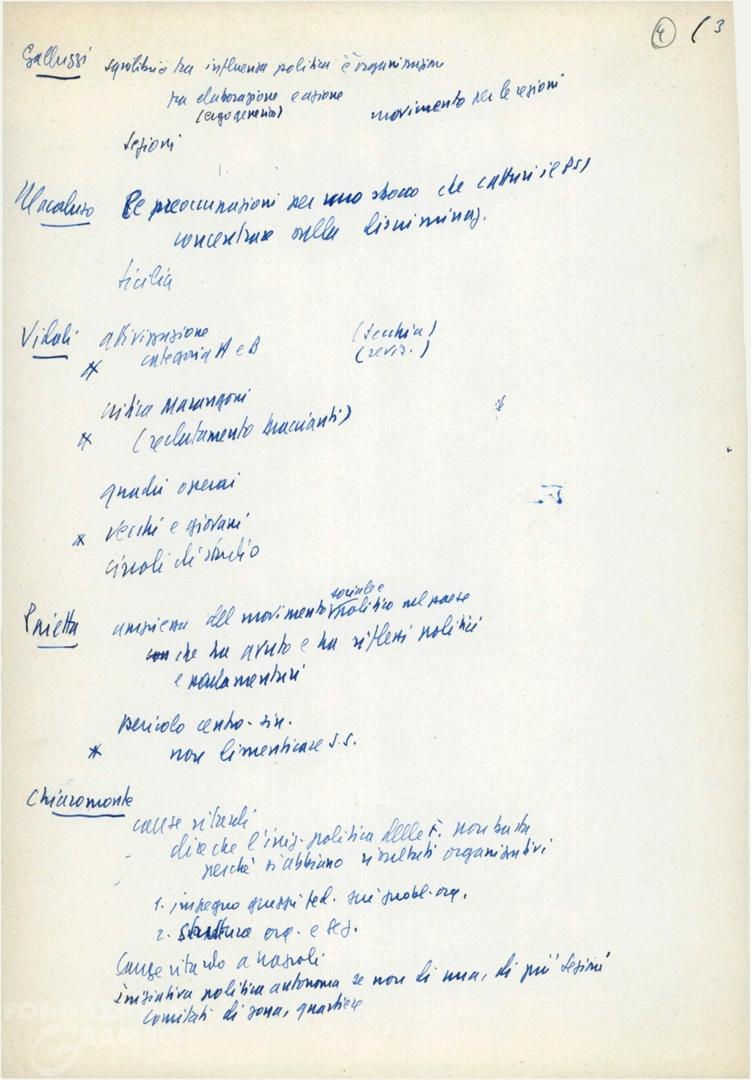 4 ( 3
Galluzzi squilibrio tra influenza politica e organizzazione
tra elaborazione e azione
(ergo generico) movimento per le regioni
sezioni
Macaluso Le preoccupazioni per uno sbocco che catturi il PSI
concentrare sulla discriminaz.
Sicilia
Vidali attivizzazione (Secchia)
* categoria A e B (reviz.)
critica Marangoni
* (reclutamento braccianti)
quadri operai
* vecchi e giovani
circoli di studio
sociale e
Pajetta ampiezza del movimento politico nel paese
che ha avuto e ha riflessi politici
e parlamentari
pericolo centro-sin.
* non dimenticare s.s.
Chiaromonte
cause ritardi
dice che l'iniz. politica delle F. non basta
perché si abbiano risultati organizzativi
1. impegno gruppi fed. sui probl. org.
2. struttura org. e sez.
Cause ritardo a Napoli
iniziativa politica autonoma se non di una, di più sezioni
Comitati di zona, quartiere
FONDAZIONE
GRAMSCI